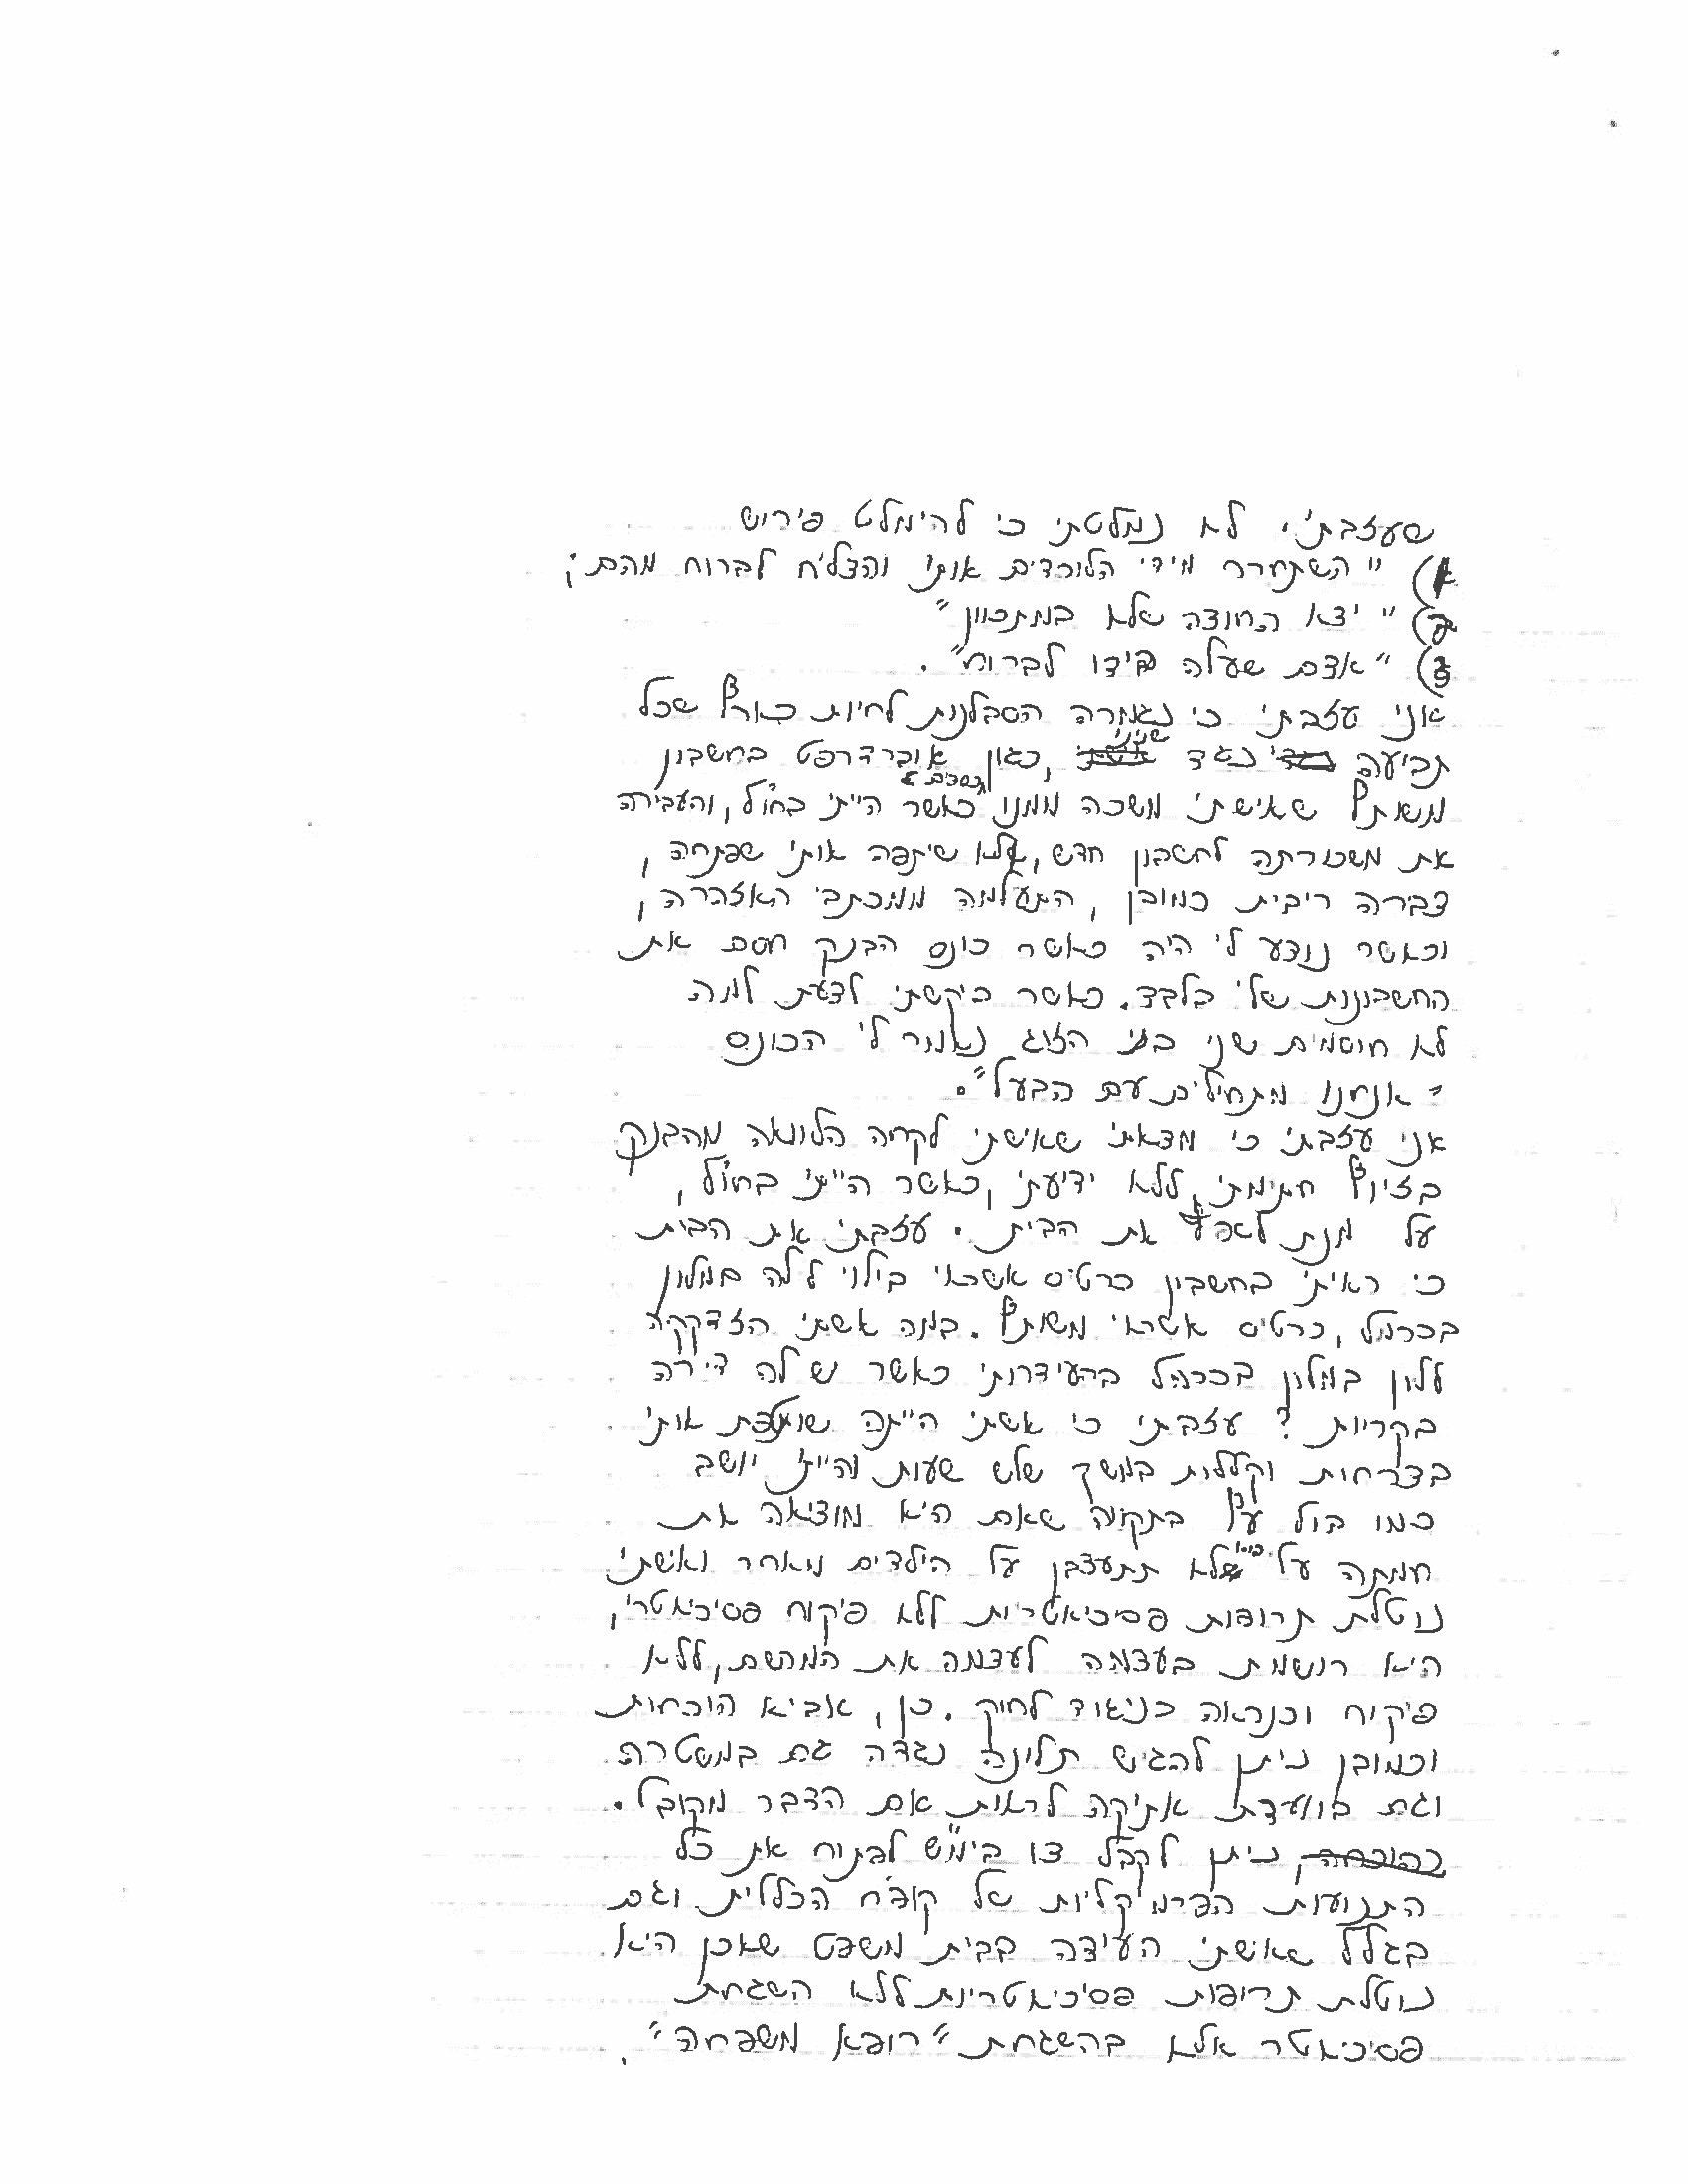 שעזבתי, לא נמלטתי כי להימלט פירוש
1) "השתחרר מידי הלוכדים אותי והצליח לברוח מהם;
2) "יצא החוצה שלא במתכוון"
3) "אדם שעלה בידו לברוח".
אני עזבתי כי נגמרה הסבלנות לחיות בארץ שכל
תביעה נגד שנינו, כגון אוברדרפט בחשבון
משותף שאישתי משכה ממנו כספים כאשר הייתי בחו"ל, והעבירה
את משכורתה לחשבון חדש, ללא שיתפה אותי שפתחה,
צברה ריבית כמובן, התעלמה ממכתבי האזהרה,
וכאשר נודע לי היה כאשר כונס הבנק חסם את
החשבונות שלי בלבד. כאשר ביקשתי לדעת למה
לא חוסמים שני בני הזוג נאמר לי הכונס
"אנחנו מתחילים עם הבעל".
אני עזבתי כי מצאתי שאישתי לקחה הלוואה מהבנק
בזיוף חתימתי, ללא ידיעתי, כאשר הייתי בחו"ל,
על מנת את הבית. עזבתי את הבית
כי ראיתי בחשבון כרטיס אשראי בילוי לילה במלון
בכרמל, כרטיס אשראי משותף. במה אשתי הזדקקה
ללון במלון בכרמל בהעידרותי כאשר יש לה דירה
בקריות? עזבתי כי אשתי הייתה שוטפת אותי
בצרחות וקללות במשך שלש שעות והייתי יושב
כמו בול עץ בתקווה שאם היא מוציאה את
חמתה עלי שלא תתעצבן על הילדים מאחר ואישתי
נוטלת תרופות פסיכיאטריות ללא פיקוח פסיכיאטרי,
היא רושמת בעצמה לעצמה את המרשם, ללא
פיקוח וכנראה בניגוד לחוק. כן, אביא הוכחות
וכמובן ניתן להגיש תלונה נגדה גם במשטרה
וגם בוועדת אתיקה לראות אם הדבר מקובל.
בהוכחה, ניתן לקבל צו בימ"ש לפתוח את כל
התנועות הפרמקליות של קופ"ח הכללית וגם
בגלל שאשתי העידה בבית משפט שאכן היא
נוטלת תרופות פסיכיאטריות ללא השגחת
פסיכיאטר אלא בהשגחת "רופא משפחה".